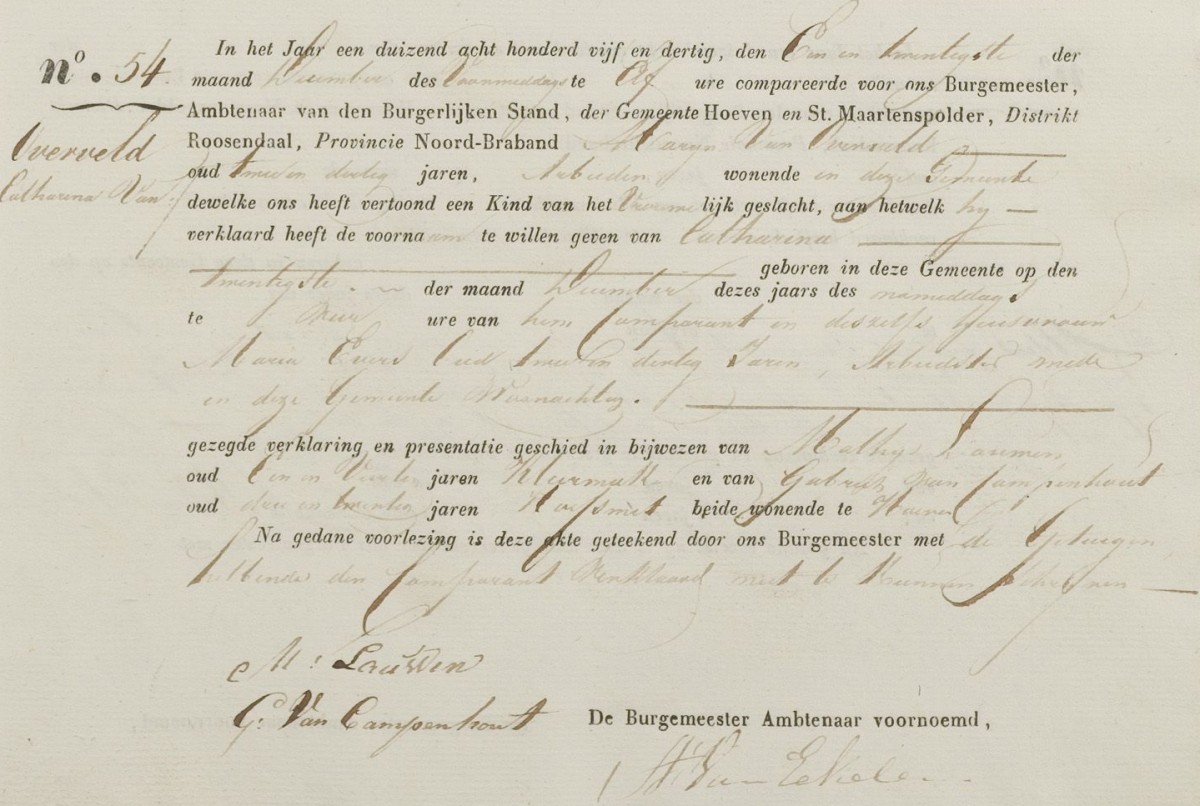 nº. 54
Overveld
Catharina Van
In het Jaar een duizend acht honderd vijf en dertig, den Een en twentigste der
maand December des Voormiddags te Elf ure compareerde voor ons Burgemeester,
Ambtenaar van den Burgerlijken Stand, der Gemeente Hoeven en St. Maartenspolder, Distrikt
Roosendaal, Provincie Noord-Braband Maryn Van Overveld
oud twee en dertig jaren, Arbeider, wonende in deze Gemeente
dewelke ons heeft vertoond een Kind van het Vrouwelijk geslacht, aan hetwelk hy
verklaard heeft de voornaam te willen geven van Catharina
geboren in deze Gemeente op den
twentigste der maand December dezes jaars des nameddags
te vier ure van hem Comparant en deszelfs Huisvrouw
Maria Evers Oud twee en dertig Jaren, Arbeidster mede
in deze Gemeente Woonachtig.
gezegde verklaring en presentatie geschied in bijwezen van Mathys Lauwen
oud Een en Veertig jaren Kleermaker en van Gabriel Van Campenhout
oud drie en twentig jaren Hoefsmet beide wonende te Hoeven
Na gedane voorlezing is deze akte geteekend door ons Burgemeester met de Getuigen
hebbende den Comparant Verklaard niet te kunnen schryven
M: Lauwen
G: Van Campenhout
De Burgemeester Ambtenaar voornoemd,
Van Eekelen